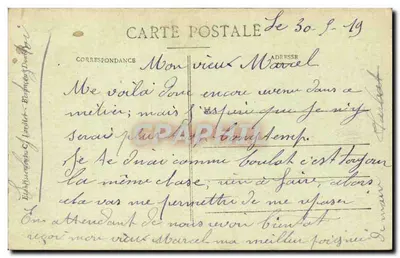 CARTE POSTALE
Le 30-5-19
CORRESPONDANCE
ADRESSE
Mon vieux Marcel
Me voilà donc encore revenu dans ce
métier; mais j'espère que je n'y
serai plus longtemp.
Je te dirai comme boulot c'est toujour
la même chose, rien à faire, alors
cela vas me permettre de me reposer
En attendant de nous revoir bientot
reçoi mon vieux Marcel ma meilleur poignée
de main